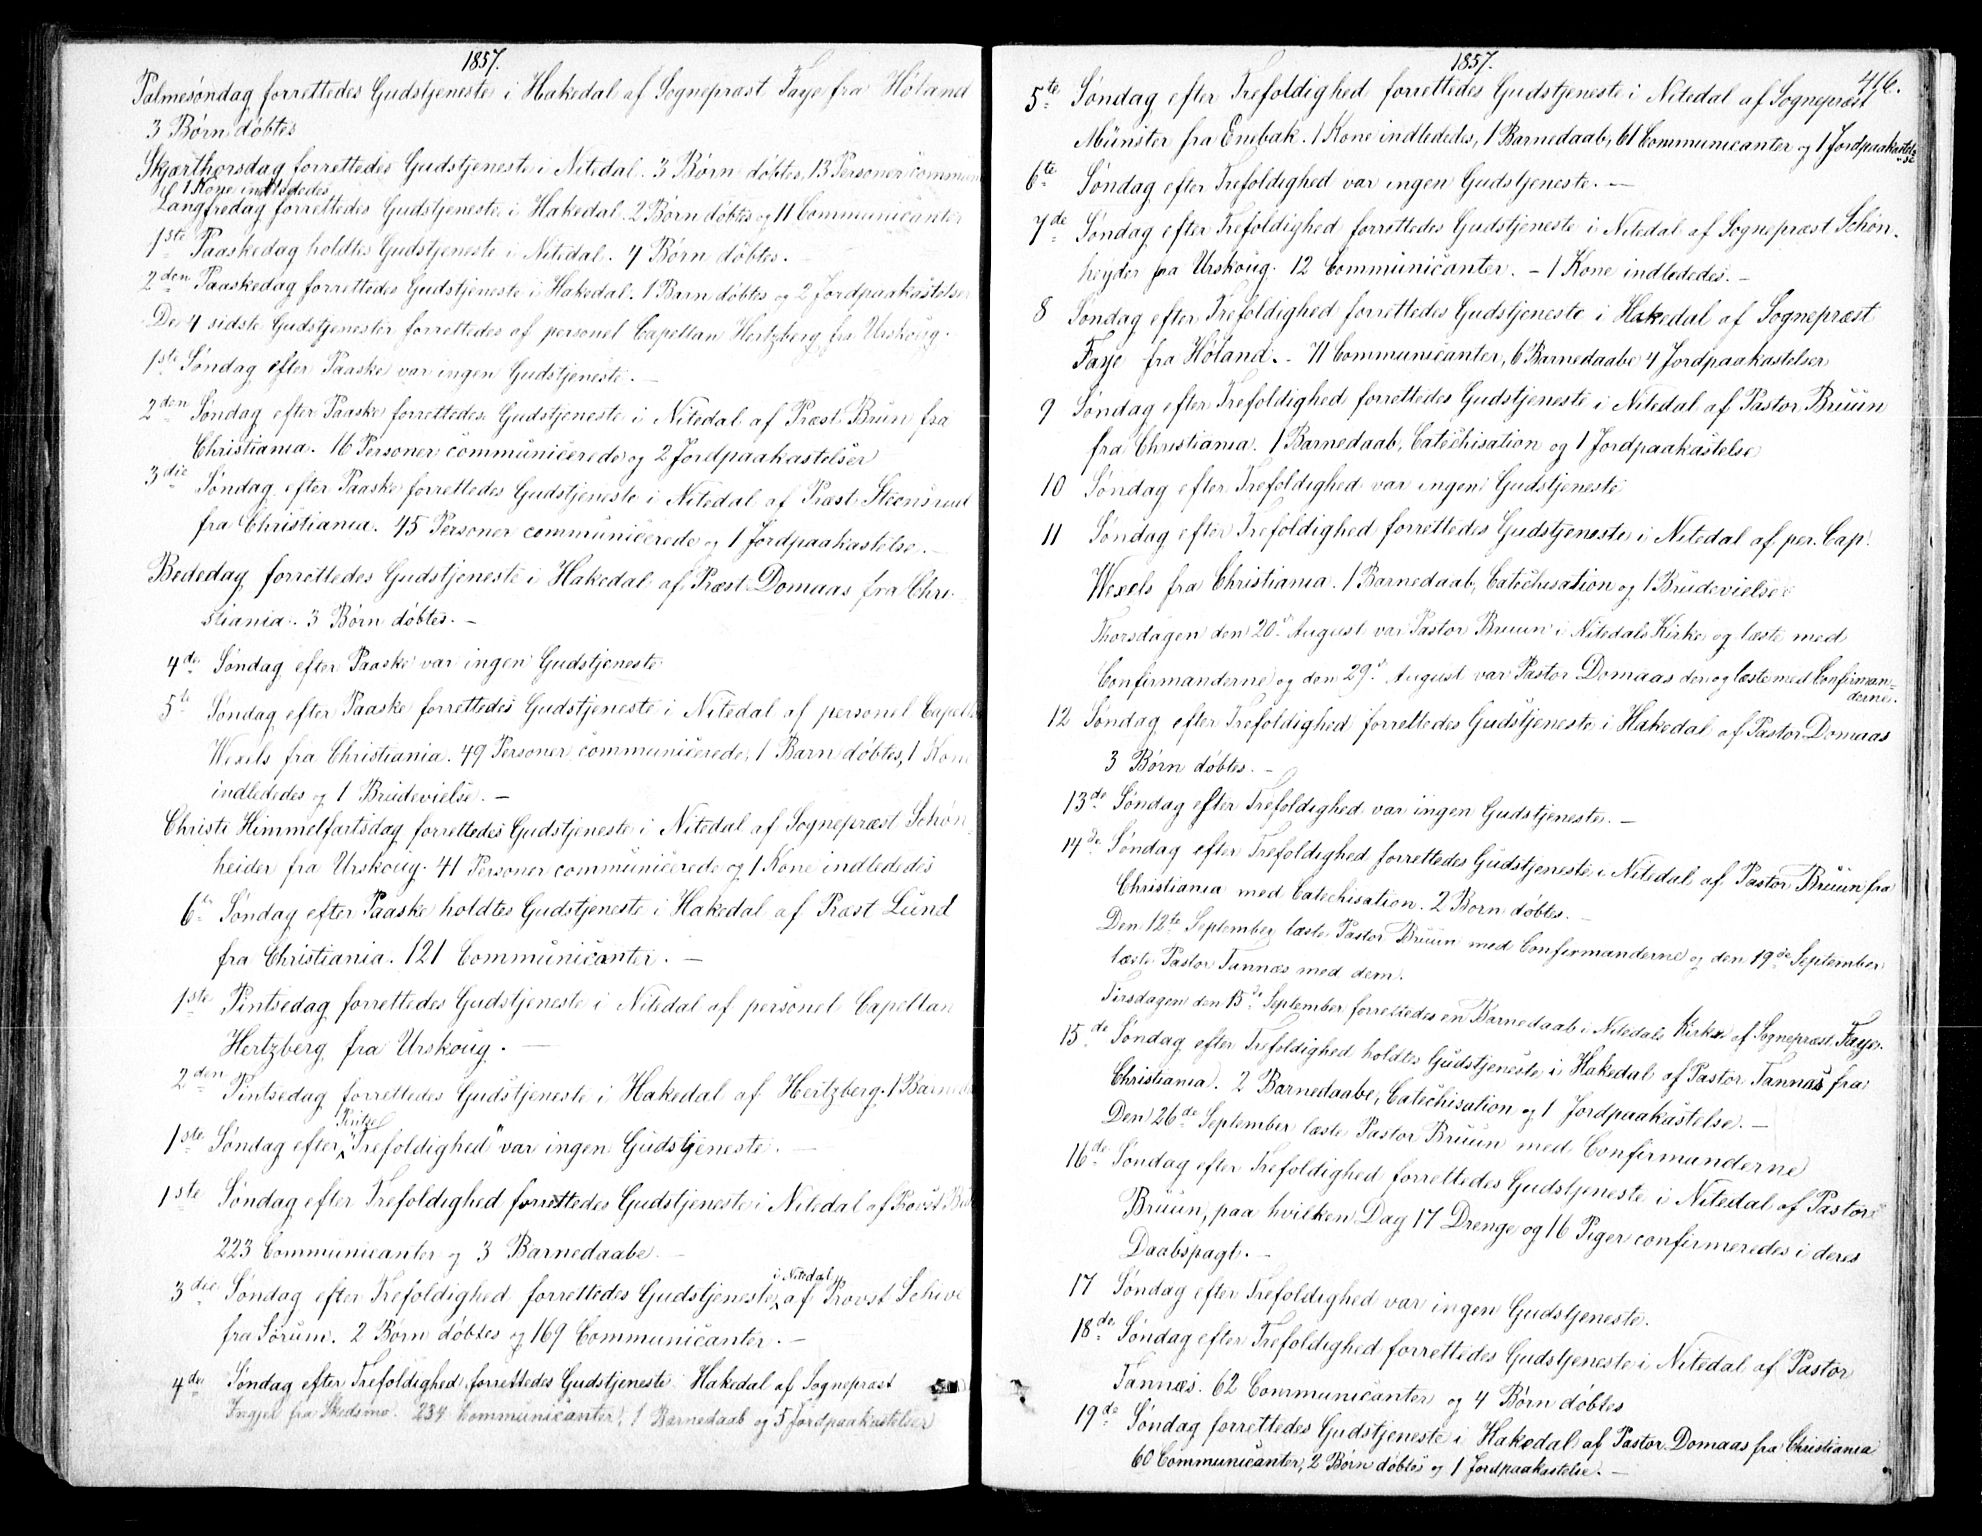 1857.
Palmesøndag forrettedes Gudstjeneste i Hakedal af Sognepræst Faye fra Høland
3 Børn døbtes
Skjærthorsdag forrettedes Gudstjeneste i Nitedal. 3 Børn døbtes, 13 Personer commun
1 Kone indlededes
Langfredag forrettedes Gudstjeneste i Hakedal. 2 Børn døbtes og 11 Communicanter
1ste Paaskedag holdtes Gudstjeneste i Nitedal. 4 Børn døbtes.
2den Paaskedag forrettedes Gudstjeneste i Hakedal. 1 Barn døbtes og 2 Jordpaakastelser
De 4 sidste Gudstjenester forrettedes af personel Capellan Hertzberg fra Urskoug.
1ste Søndag efter Paaske var ingen Gudstjeneste. —
2den Søndag efter Paaske forrettedes Gudstjeneste i Nitedal af Præst Brun fra
Christiania. 16 Personer communicerede og 2 Jordpaakastelser
3die Søndag efter Paaske forrettedes Gudstjeneste i Nitedal af Præst Steensrud
fra Christiania. 45 Personer communicerede og 1 Jordpaakastelse. —
Bededag forrettedes Gudstjeneste i Hakedal af Præst Domaas fra Chri-
stiania. 3 Børn døbtes. —
4de Søndag efter Paaske var ingen Gudstjeneste
5te Søndag efter Paaske forrettedes Gudstjeneste i Nitedal af personel Capell
Wexels fra Christiania. 49 Personer communicerede, 1 Barn døbtes, 1 Kone
indlededes og 1 Brudevielse. —
Christi Himmelfartsdag forrettedes Gudstjeneste i Nitedal af Sognepræst Schøn-
heider fra Urskoug. 41 Personer communicerede og 1 Kone indlededes
6te Søndag efter Paaske holdtes Gudstjeneste i Hakedal af Præst Lund
fra Christiania. 121 Communicanter. —
1ste Pintsedag forrettedes Gudstjeneste i Nitedal af personel Capellan
Hertzberg fra Urskoug. —
2den Pintsedag forrettedes Gudstjeneste i Hakedal af Hertzberg. 1 Barned
Pintse
1ste Søndag efter "Trefoldighed" var ingen Gudstjeneste. —
1ste Søndag efter Trefoldighed forrettedes Gudstjeneste i Nitedal af Provst
223 Communicanter og 3 Barnedaabe. —
i Nitedal
3die Søndag efter Trefoldighed forrettedes Gudstjeneste af Provst Schive
fra Sørum. 2 Børn døbtes og 169 Communicanter. —
4de Søndag efter Trefoldighed forrettedes Gudstjeneste i Hakedal af Sognepræst
Ingjer fra Skedsmo. 234 Communicanter, 1 Barnedaab og 5 Jordpaakastelser
1857.
416.
5te Søndag efter Trefoldighed forrettedes Gudstjeneste i Nitedal af Sognepræst
Münster fra Enebak. 1 Kone indlededes, 1 Barnedaab, 61 Communicanter og 1 Jordpaakastel-
se
6te Søndag efter Trefoldighed var ingen Gudstjeneste. —
7de Søndag efter Trefoldighed forrettedes Gudstjeneste i Nitedal af Sognepræst Schøn-
heyder fra Urskoug. 12 Communicanter. — 1 Kone indlededes. —
8 Søndag efter Trefoldighed forrettedes Gudstjeneste i Hakedal af Sognepræst
Faye fra Høland. - 71 Communicanter, 6 Barnedaabe 4 Jordpaakastelser
9 Søndag efter Trefoldighed forrettedes Gudstjeneste i Nitedal af Pastor Bruun
fra Christiania. 1 Barnedaab, Catechisation og 1 Jordpaakastelse
10 Søndag efter Trefoldighed var ingen Gudstjeneste
11 Søndag efter Trefoldighed forrettedes Gudstjeneste i Nitedal af per. Cap.
Wexels fra Christiania. 1 Barnedaab, Catechisation og 1 Brudevielse
Thorsdagen den 20de August var Pastor Bruun i Nitedals Kirke og læste med
Confirmanderne og den 29de August var Pastor Domaas der og læste med Confirman-
derne.
12 Søndag efter Trefoldighed forrettedes Gudstjeneste i Hakedal af Pastor Domaas
3 Børn døbtes. —
13de Søndag efter Trefoldighed var ingen Gudstjeneste. —
14de Søndag efter Trefoldighed forrettedes Gudstjeneste i Nitedal af Pastor Bruun fra
Christiania med Catechisation. 2 Børn døbtes. —
Den 12te September læste Pastor Bruun med Confirmanderne og den 19de September
læste Pastor Tannæs med dem.
Tirsdagen den 15de September forrettedes en Barnedaab i Nitedals Kirke af Sognepræst Faye.
15de Søndag efter Trefoldighed holdtes Gudstjeneste i Hakedal af Pastor Tannæs fra
Christiania. 2 Barnedaabe, Catechisation og 1 Jordpaakastelse. —
Den 26de September læste Pastor Bruun med Confirmanderne
16de Søndag efter Trefoldighed forrettedes Gudstjeneste i Nitedal af Pastor
Bruun, paa hvilken Dag 17 Drenge og 16 Piger confirmeredes i deres
Daabspagt. —
17 Søndag efter Trefoldighed var ingen Gudstjeneste.
18de Søndag efter Trefoldighed forrettedes Gudstjeneste i Nitedal af Pastor
Tannæs. 62 Communicanter og 4 Børn døbtes
19de Søndag forrettedes Gudstjeneste i Hakedal af Pastor Domaas fra Christiania
60 Communicanter, 2 Børn døbtes og 1 Jordpaakastelse. —